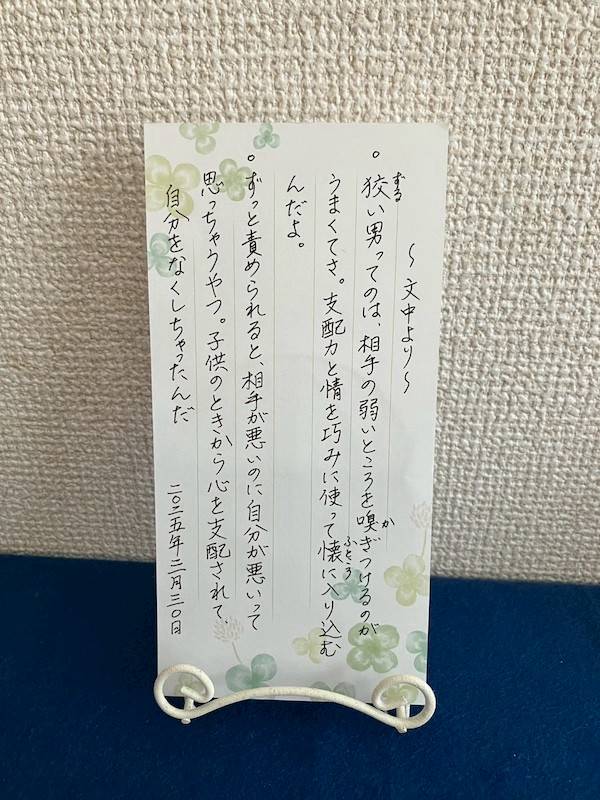 〜文中より〜
。狡い男ってのは、相手の弱いところを嗅ぎつけるのが
ずる
か
うまくてさ。支配力と情を巧みに使って懐に入り込む
ふところ
んだよ。
。ずっと責められると、相手が悪いのに自分が悪いって
思っちゃうやつ。子供のときから心を支配されて、
自分をなくしちゃったんだ
二〇二五年三月三〇日